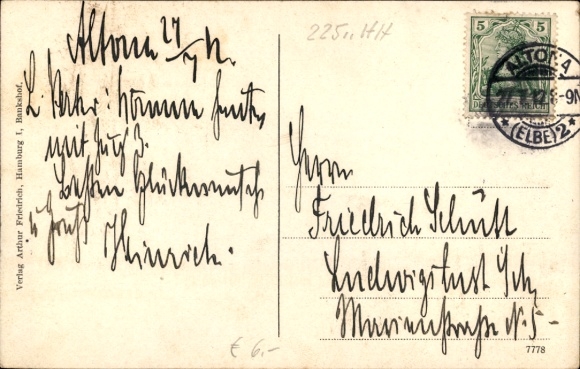 Altona 27/7 12.
L. Peter! Komme heute
mit Zug 3.
Besten Glückwunsch
u Gruß
Heinrich.
Verlag Arthur Friedrich, Hamburg I, Bankshof.
225 HH
5 5
DEUTSCHES REICH
ALTONA
27.7.12. 8-9N
* (ELBE) 2 *
Herrn
Friedrich Schütt
Ludwigslust
Marienstraße N. 5
7778
€ 6.-